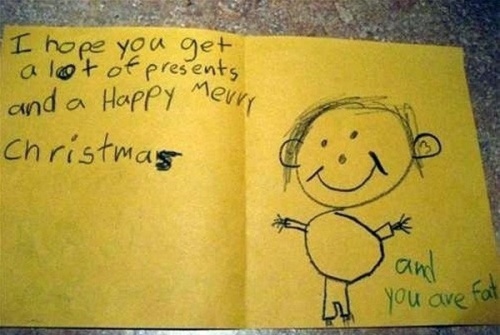 I hope you get
a lot of presents
and a Happy Merry
Christmas
and
you are fat